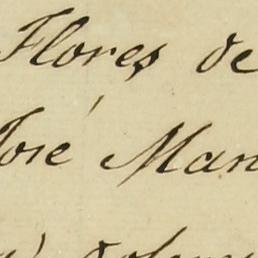 Flores de
José Man